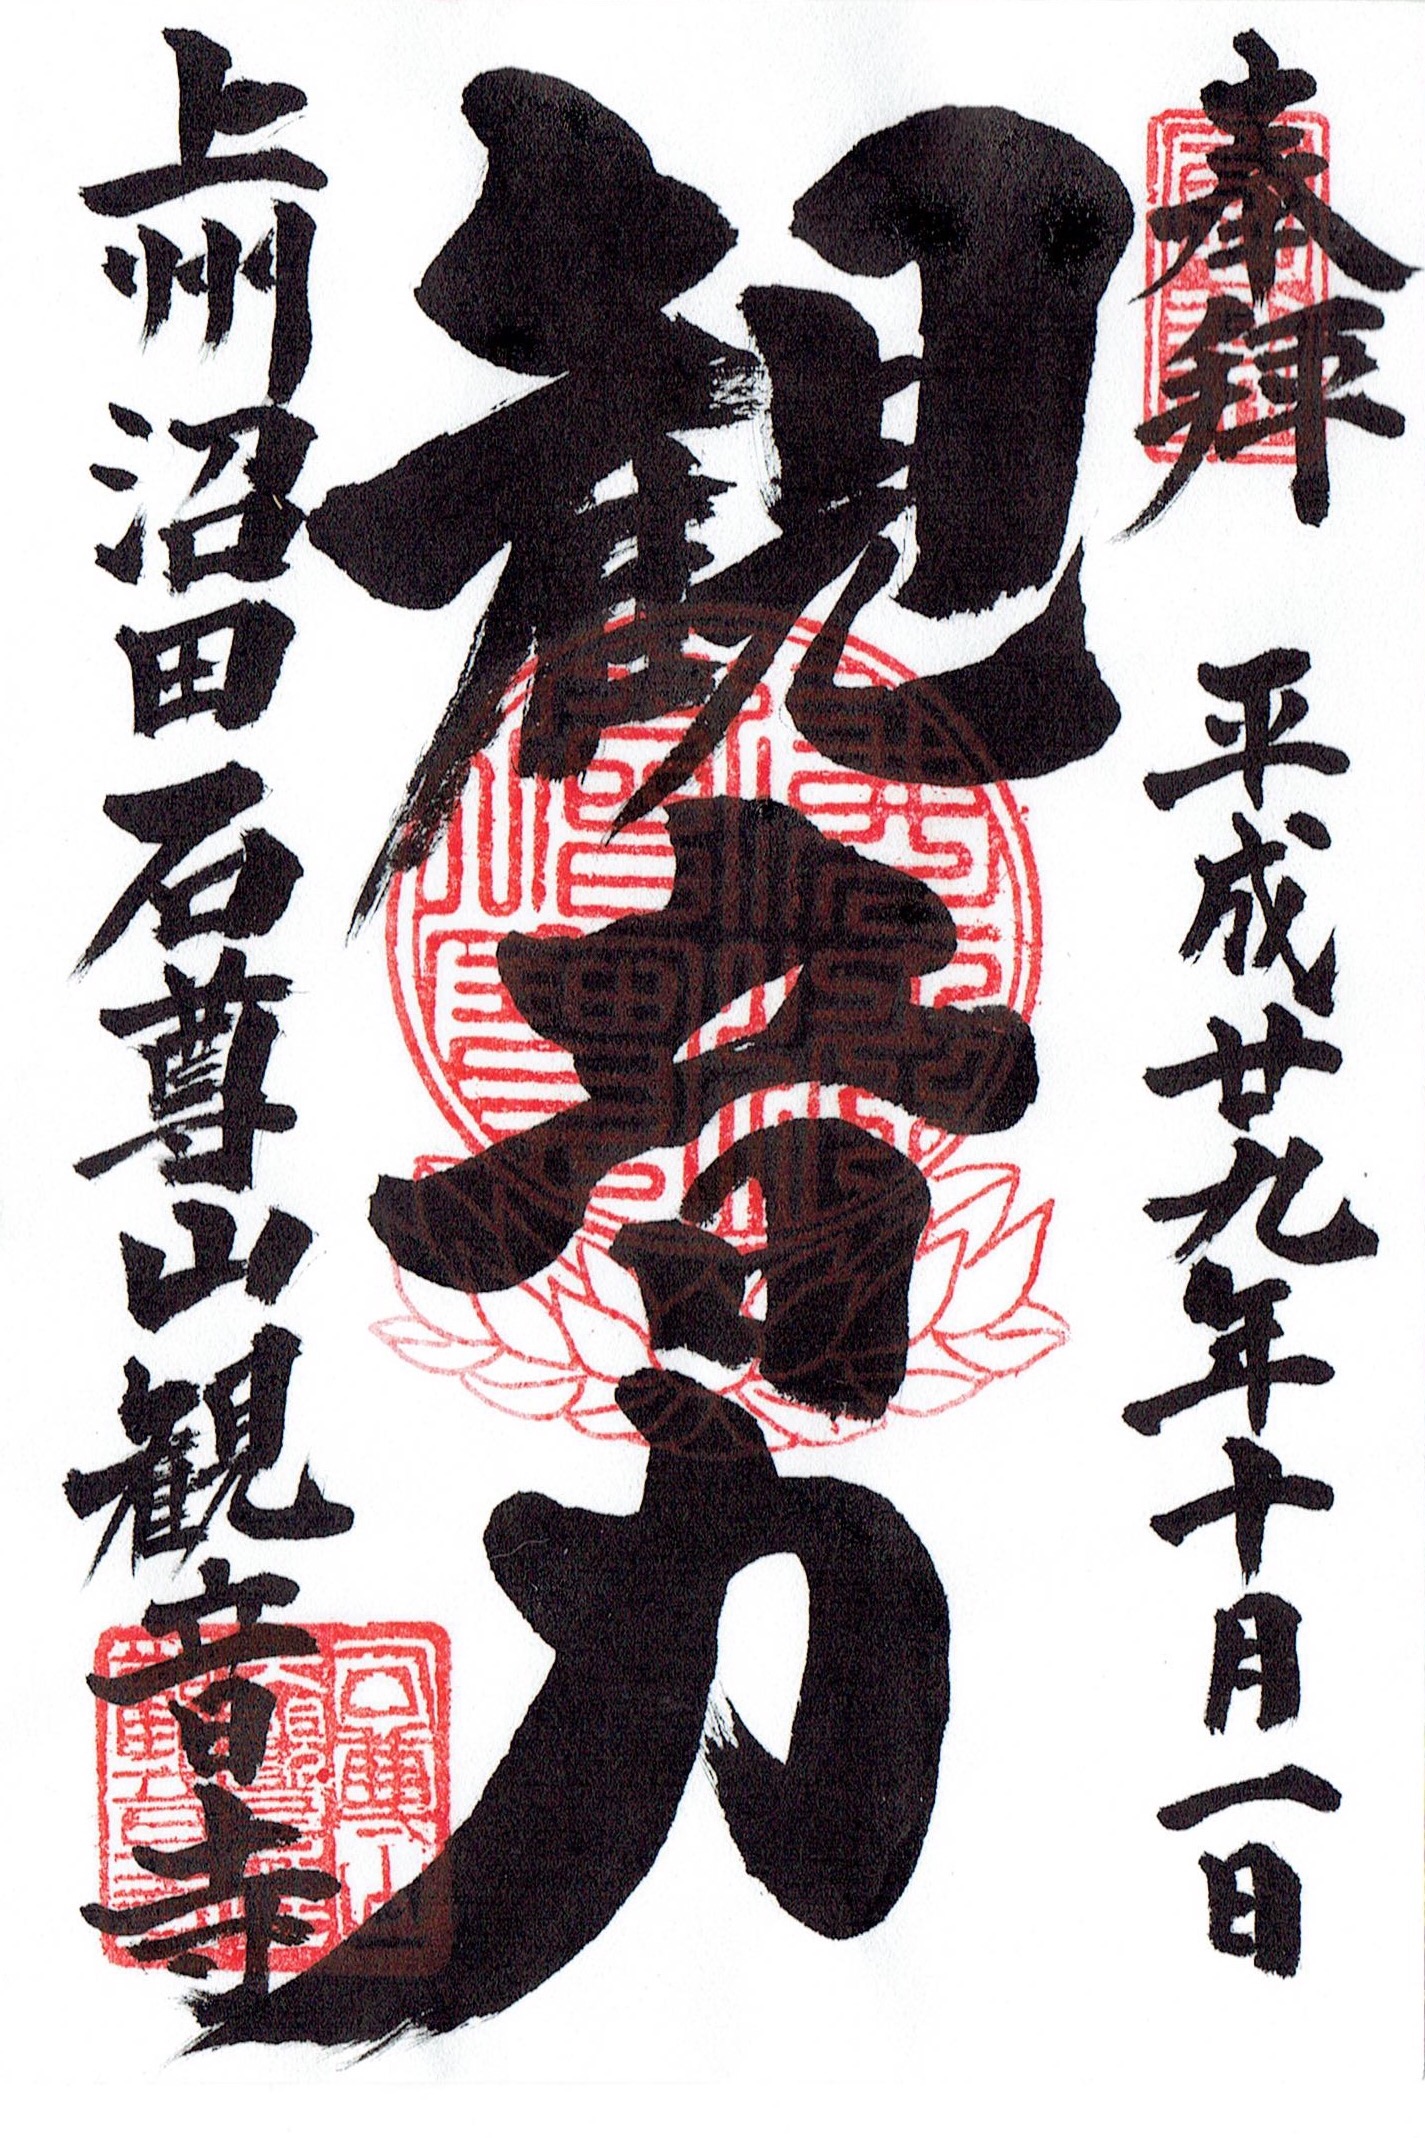 奉拝 平成廿九年十月一日
観音力
上州沼田石尊山観音寺